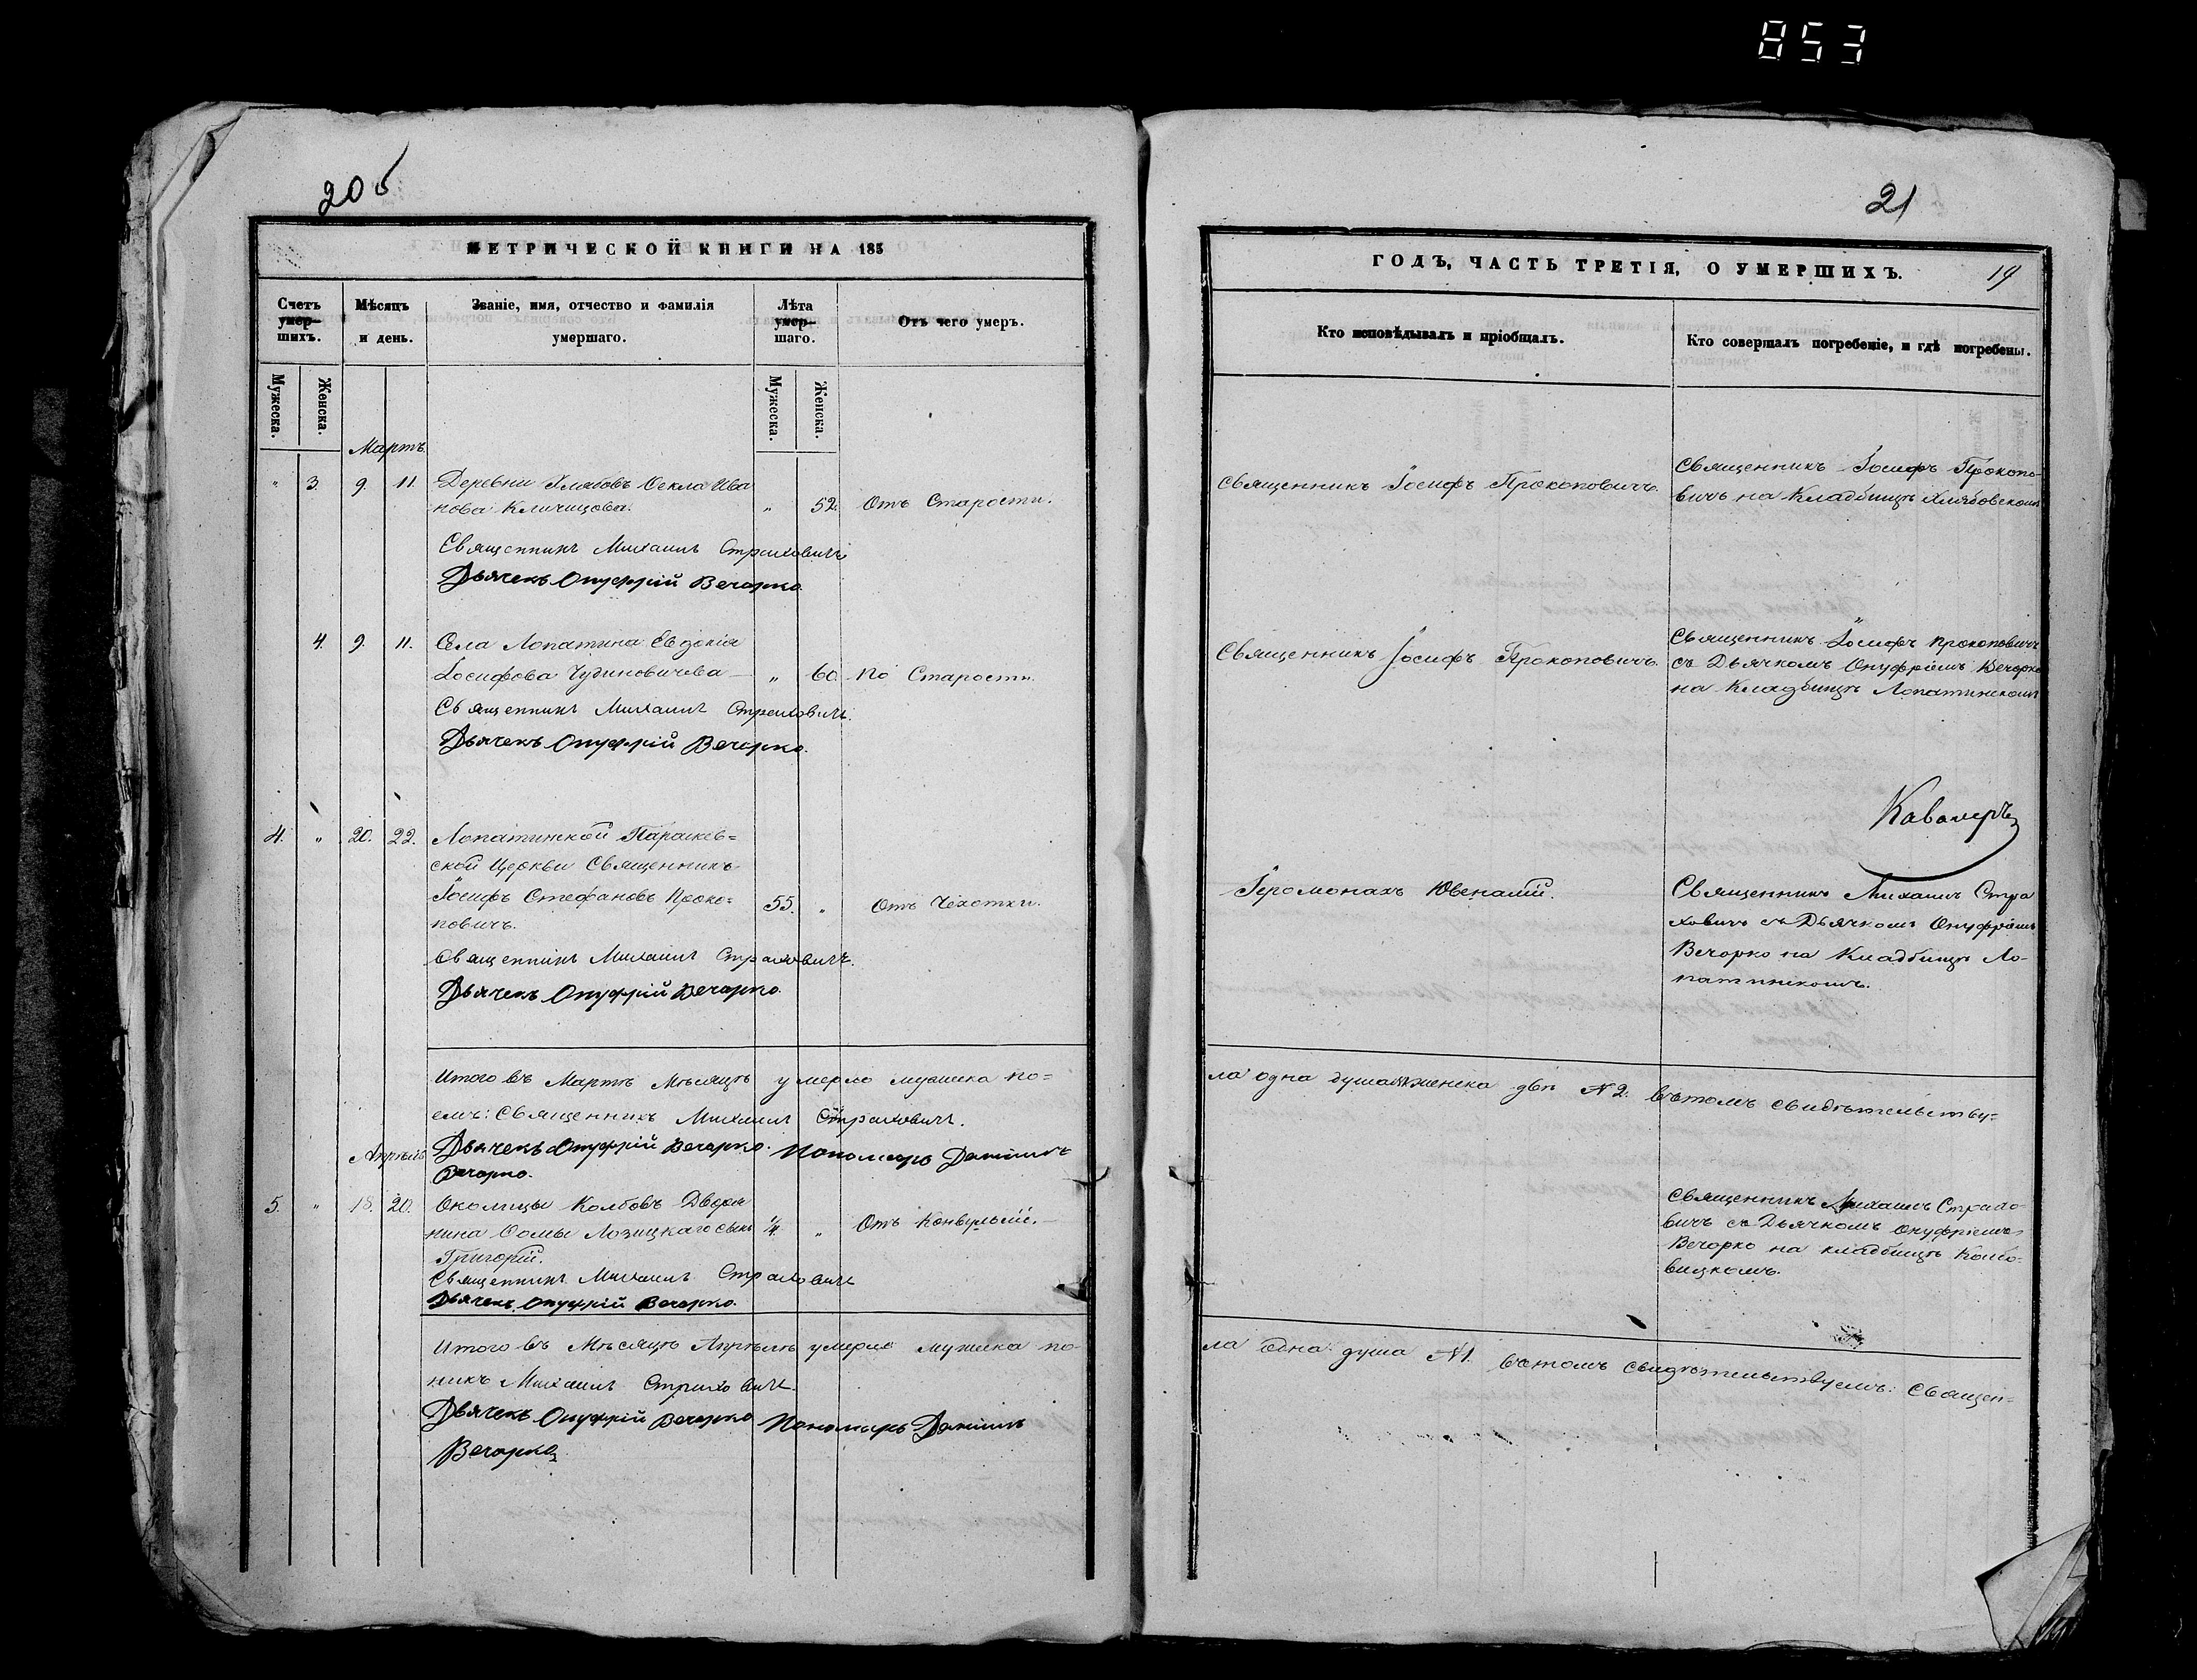 853
20 б
МЕТРИЧЕСКОЙ КНИГИ НА 185
Счетъ умер-шихъ.
Мѣсяцъ и день.
Званіе, имя, отчество и фамилія умершаго.
Лѣта умер-шаго.
Отъ чего умеръ.
Мужеска.
Женска.
Мужеска.
Женска.
Мартъ.
" 3. 9. 11. Деревни Хлябовъ Ѳекла Ива
нова Кличицова. " 52. Отъ Старости.
Священникъ Михаилъ Страховичъ
Дьячекъ Онуфрій Вечорко.
4. 9. 11. Села Лопатина Евдокія
Іосифова Чудиновичева — " 60. По Старости.
Священникъ Михаилъ Страховичъ.
Дьячекъ Онуфрій Вечорко.
4. " 20. 22. Лопатинской Параскев=
ской Церкви Священникъ
Іосифъ Стефановъ Проко=
повичъ. 55. " Отъ Чехотки.
Священникъ Михаилъ Страховичъ.
Дьячекъ Онуфрій Вечорко.
Итого въ Мартѣ Мѣсяцѣ умерло мужеска по=
емъ: Священникъ Михаилъ Страховичъ.
Дьячекъ Онуфрій Вечорко. Пономарь Даниилъ
Вечорко.
Апрѣль
5. " 18. 20. Околицы Колбовъ Дворя
нина Ѳомы Лозицкаго сынъ ¼. " Отъ Конвульсій.
Григорій.
Священникъ Михаилъ Страховичъ
Дьячекъ Онуфрій Вечорко.
Итого въ Мѣсяцѣ Апрѣлѣ умерло мужеска по-
никъ Михаилъ Страховичъ.
Дьячекъ Онуфрій Вечорко Пономарь Даниилъ
Вечорко
21
ГОДЪ, ЧАСТЬ ТРЕТІЯ, О УМЕРШИХЪ.
19
Кто исповѣдывалъ и пріобщалъ.
Кто совершалъ погребеніе, и гдѣ погребены.
Священникъ Іосифъ Прокоповичъ.
Священникъ Іосифъ Прокопо-
вичъ на Кладбищѣ Хлябовскомъ
Священникъ Іосифъ Прокоповичъ.
Священникъ Іосифъ Прокоповичъ
съ Дьячкомъ Онуфріемъ Вечорко
на Кладбищѣ Лопатинскомъ
Іеромонахъ Ювеналій.
Священникъ Михаилъ Стра
ховичъ съ Дьячкомъ Онуфріемъ
Вечорко на Кладбищѣ Ло-
патинскомъ.
ла одна душа женска двѣ №2. въ томъ свидѣтельству=
Священникъ Михаилъ Страхо-
вичъ съ Дьячкомъ Онуфріемъ
Вечорко на кладбищѣ Колбо-
вицкомъ.
ла одна душа №1. въ томъ свидѣтельствуемъ: Священ=